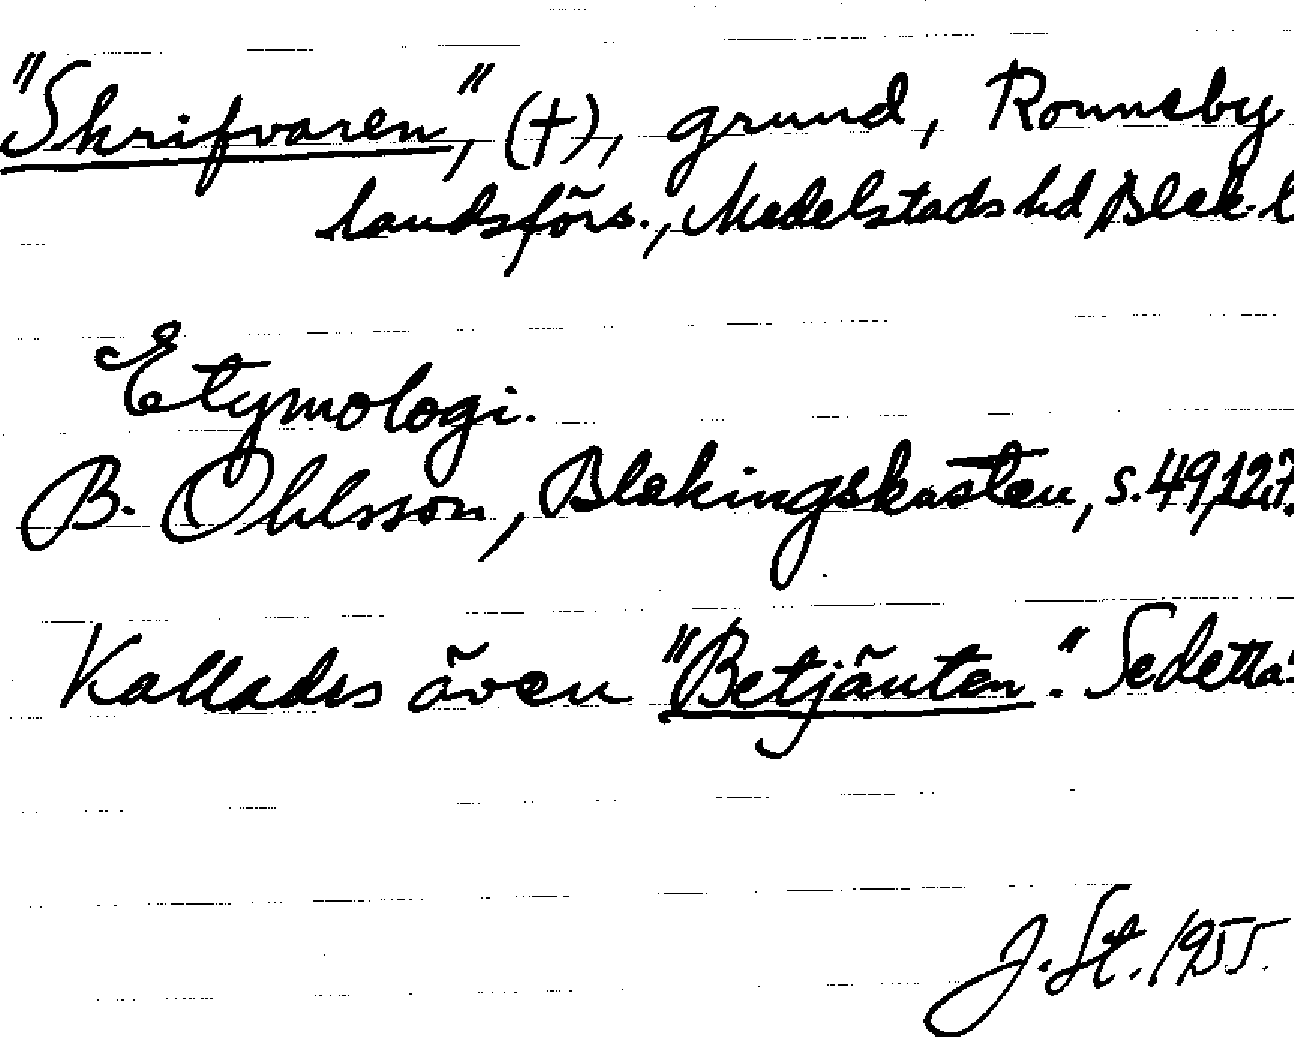 "Skrifvaren", (†), grund, Ronneby
landsförs., Medelstads hd, Blek. l
Etymologi.
B. Ohlsson, Blekingskusten, s. 49, 127.
Kallades även "Betjänten". Se detta!
J. St. 1955.